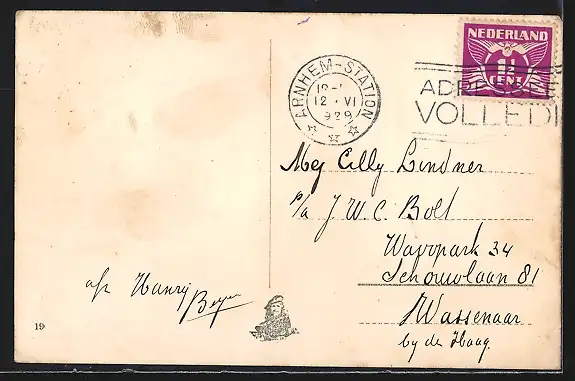 NEDERLAND
1½
CENT
ARNHEM-STATION
12 VI
929
ADRESSEER
VOLLEDI
Mej Cilly Lindner
p/a J. W. C. Bolt
34
Schouwlaan 81
Wassenaar
by de Haag.
afz Hanry
Beyer
19